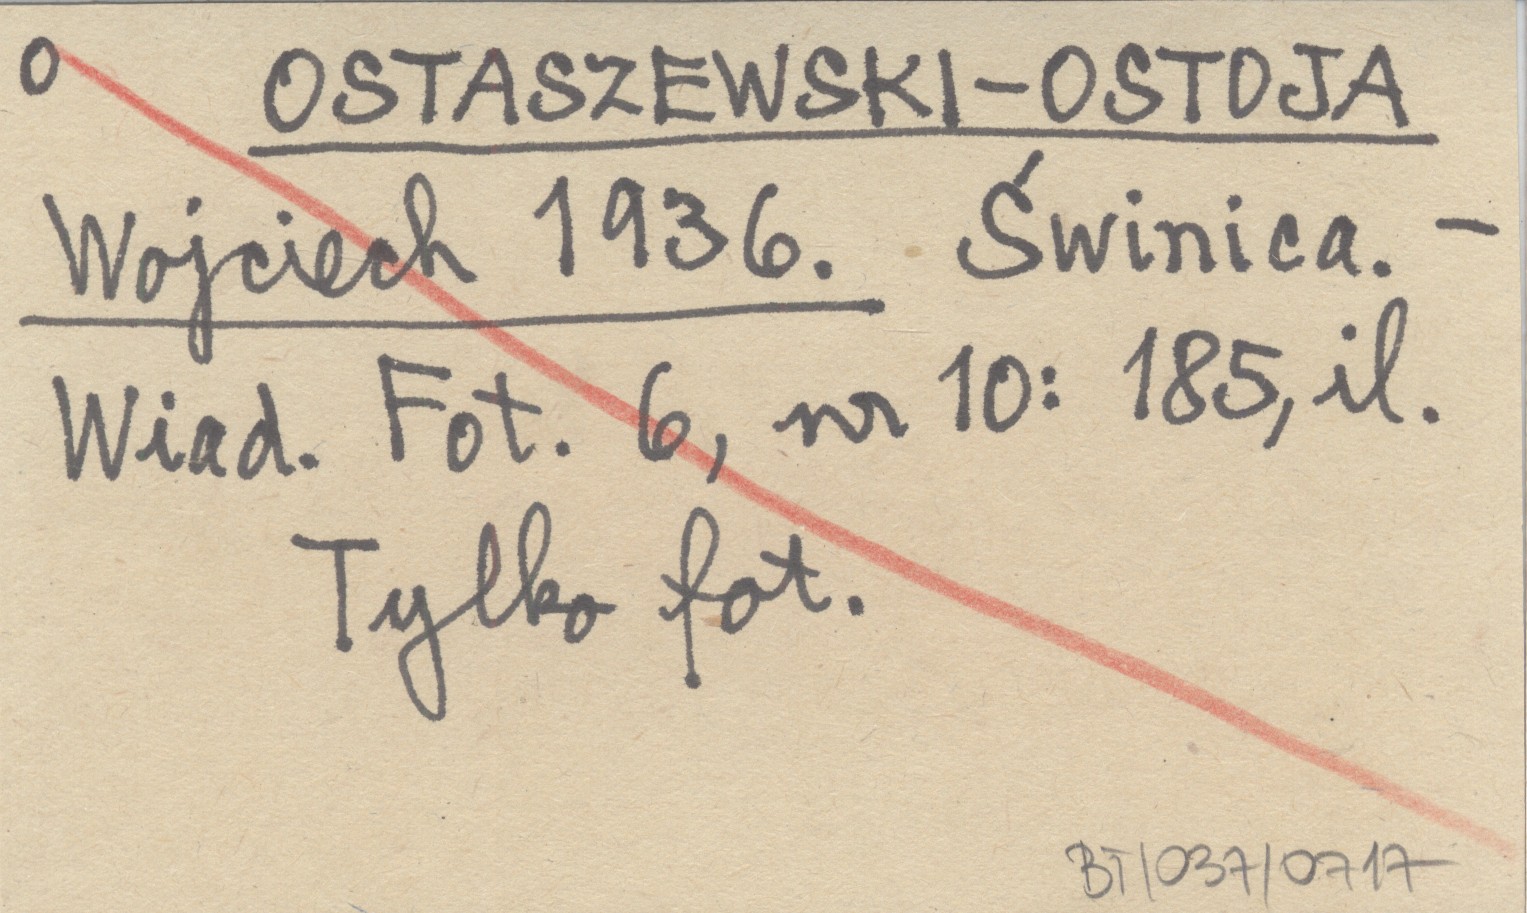 O OSTASZEWSKI-OSTOJA
Wojciech 1936. Świnica. -
Wiad. Fot. 6, nr 10: 185, il.
Tylko fot.
BT/037/0717